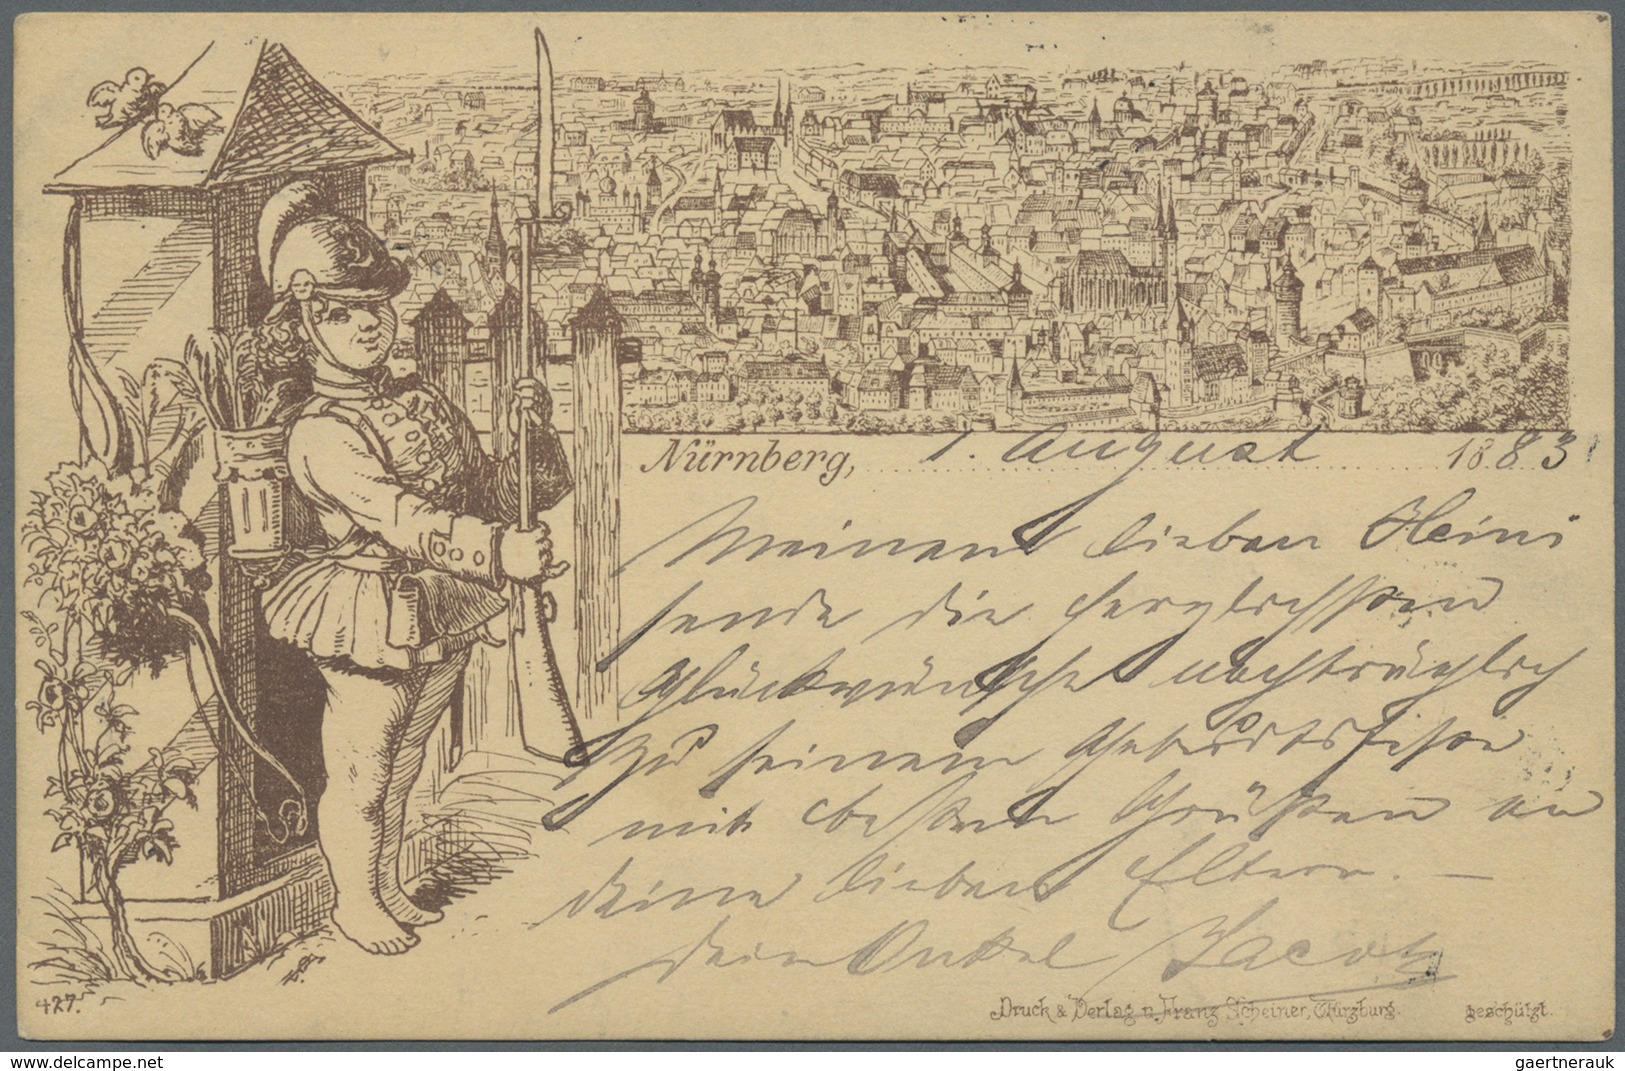 Nürnberg, 1. August 1883
Meinem lieben Heini
sende die herzlichsten
Glückwünsche nachträglich
zu seinem Geburtsfeste
mit besten Grüßen an
deine lieben Eltern. —
dein Onkel Jacob
427.
Druck & Verlag v. Franz Scheiner, Würzburg. geschützt.
gaertnerauk